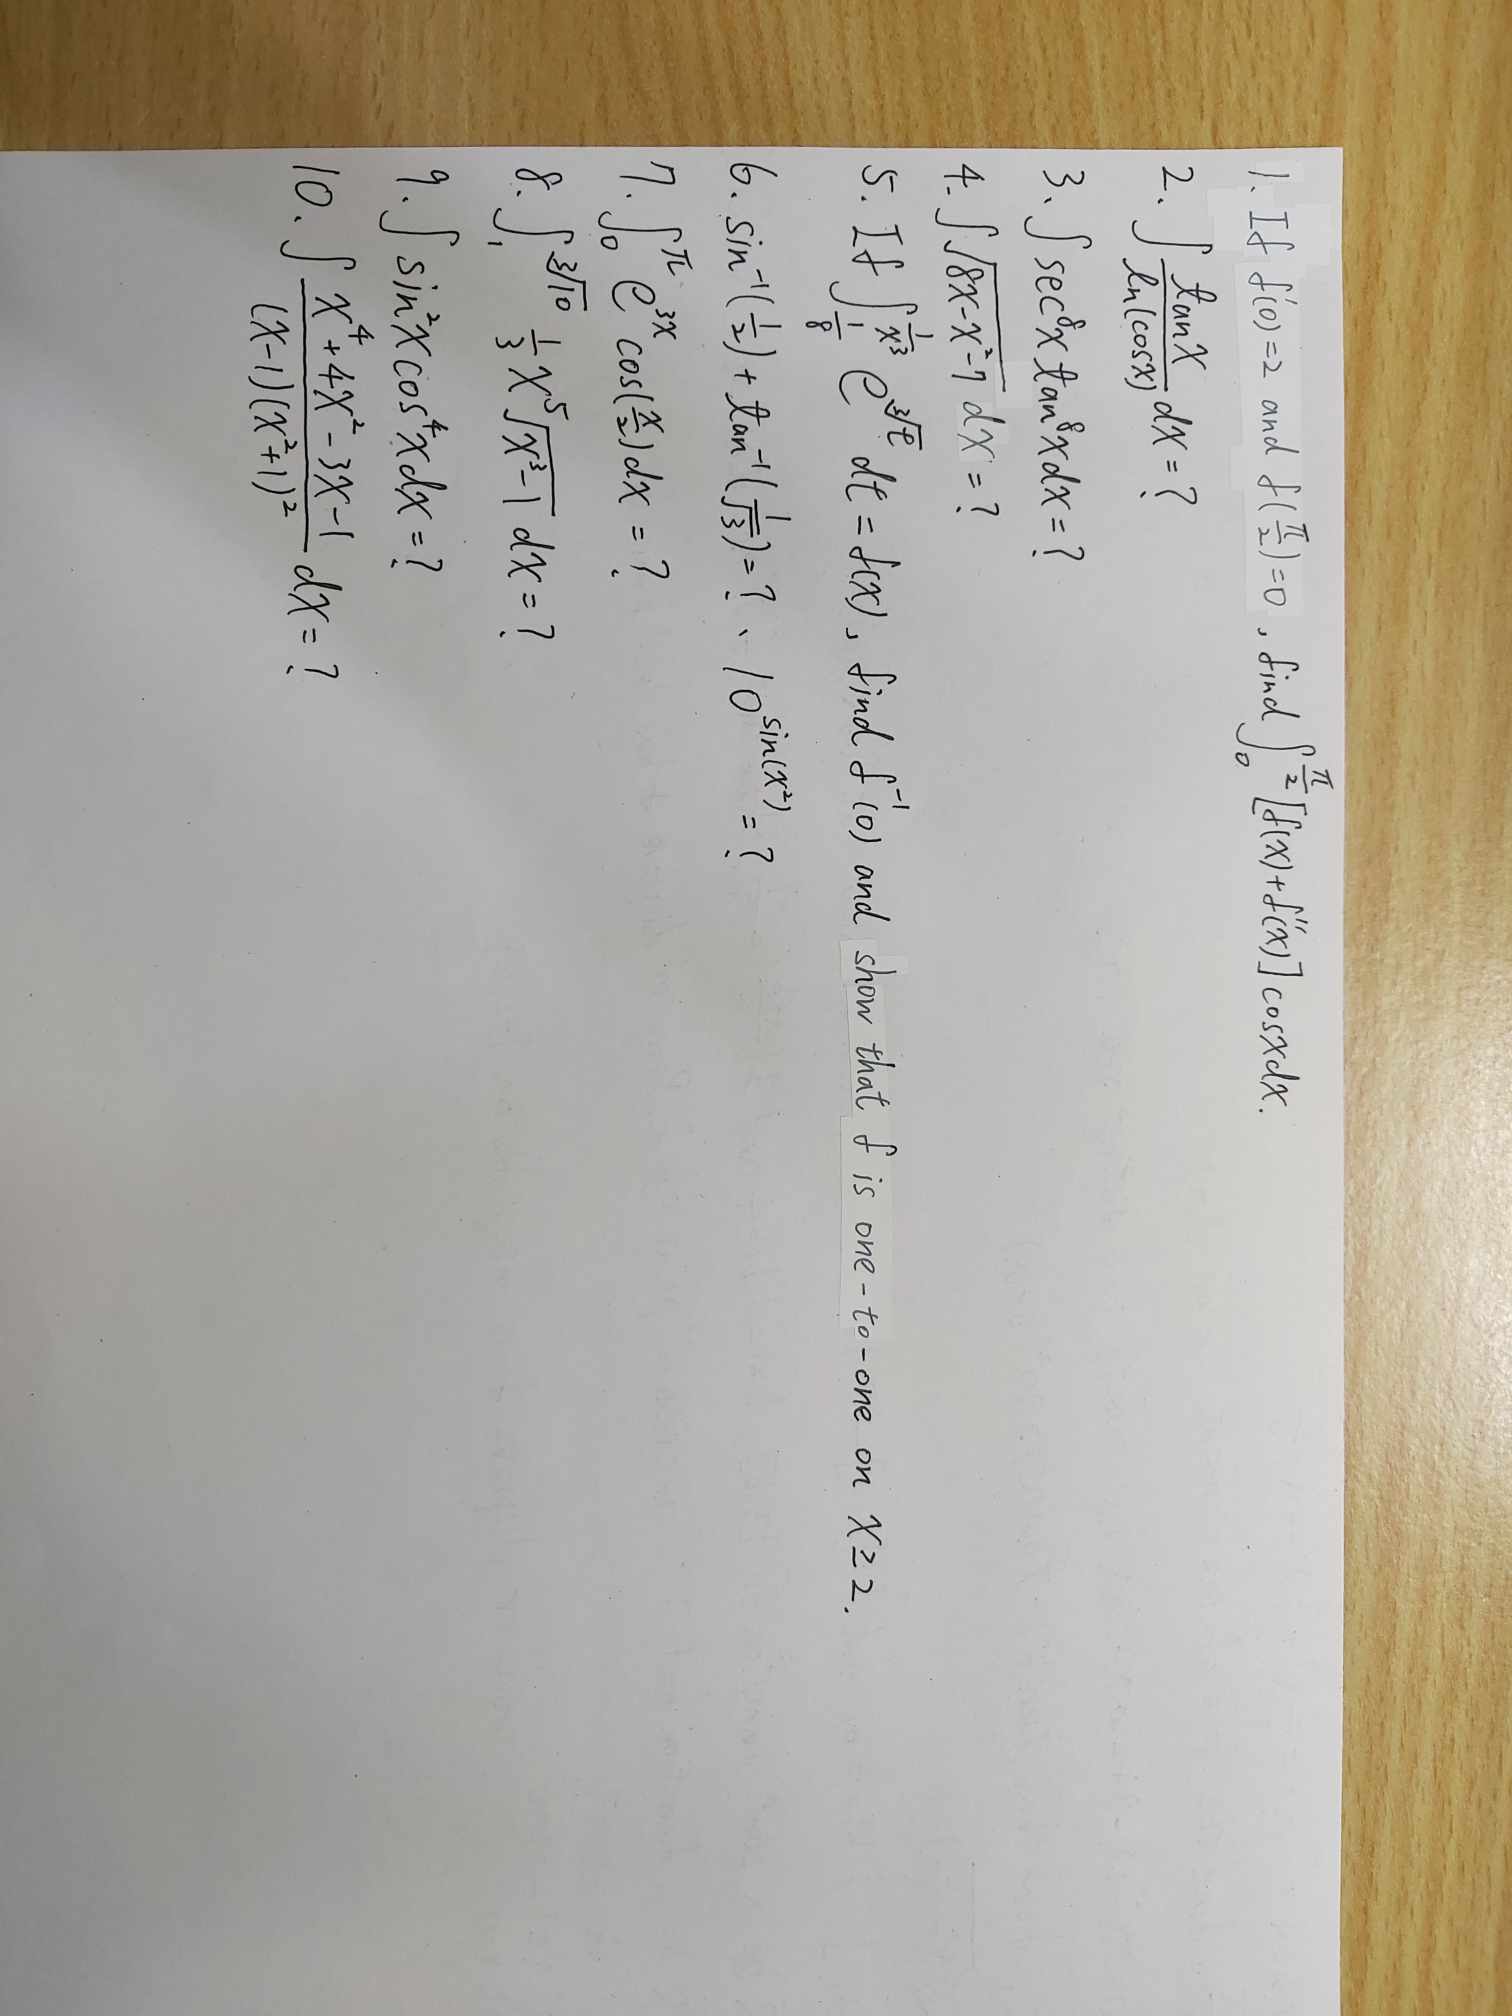 1. If f'(0)=2 and f(π/2)=0, find ∫₀^(π/2) [f(x)+f''(x)] cosx dx.
2. ∫ tanx / ln(cosx) dx = ?
3. ∫ sec⁸x tan⁸x dx = ?
4. ∫ √(8x-x²-7) dx = ?
5. If ∫_(1/8)^(1/x³) e^(∛t) dt = f(x), find f⁻¹(0) and show that f is one-to-one on x≥2.
6. sin⁻¹(1/2) + tan⁻¹(1/√3) = ? 、 10^(sin(x²)) = ?
7. ∫₀^π e^(3x) cos(x/2) dx = ?
8. ∫₁^(∛10) 1/3 x⁵ √(x³-1) dx = ?
9. ∫ sin²x cos⁴x dx = ?
10. ∫ (x⁴+4x²-3x-1) / ((x-1)(x²+1)²) dx = ?